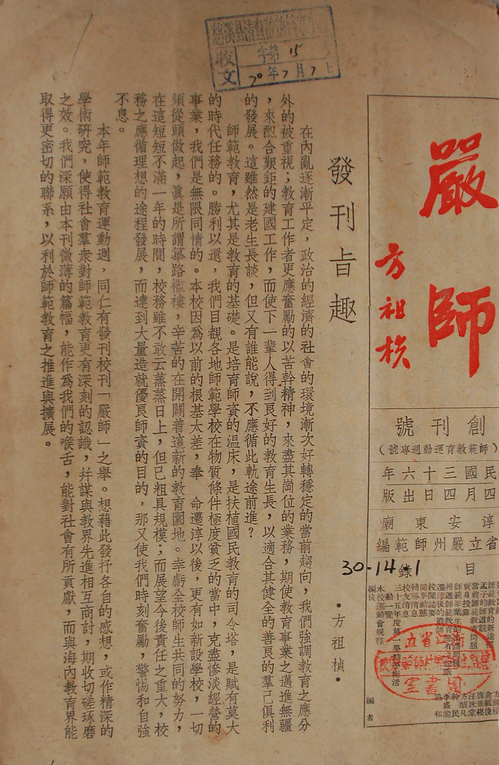 嚴師
方祖楨
創刊號
（師範教育運動週專號）
民國三十六年
四月四日出版
淳安東廟
省立嚴州師範編
目錄
30-14-1
編者
發刊旨趣
·方祖楨·
在內亂逐漸平定，政治的經濟的社會的環境漸次好轉穩定的當前趨向，我們強調教育之應分
外的被重視；教育工作者更應奮勵的以苦幹精神，來盡其崗位的業務，期使教育事業之邁進無疆
，來配合艱鉅的建國工作，而使下一輩人得到良好的教育生長，以適合其健全的善良的羣己俱利
的發展。這雖然是老生長談，但又有誰能說，不應循此軌途前進？
師範教育，尤其是教育的基礎。是培育師資的溫床，是扶植國民教育的司令塔，是賦有莫大
的時代任務的。勝利以還，我們目覩各地師範學校在物質條件極度貧乏的當中，克盡慘淡經營的
事業，我們是無限同情的。本校因為以前的根基太差，奉　命遷淳以後，更有如新設學校，一切
須從頭做起，眞是所謂篳路襤褸，辛苦的在開闢着這新的教育園地。幸虧全校師生共同的努力，
在這短短不滿一年的時間，校務雖不敢云蒸蒸日上，但已粗具規模；而展望今後責任之重大，校
務之應循理想的途程發展，而達到大量造就優良師資的目的，那又使我們時刻奮勵，警惕和自強
不息。
本年師範教育運動週，同仁有發刊校刊「嚴師」之舉。想藉此發抒各自的感想，或作精深的
學術研究，使得社會羣衆對師範教育更有深刻的認識，幷謀與教界先進相互商討，期收切磋琢磨
之效。我們深願由本刊微薄的篇幅，能作為我們的喉舌，能對社會有所貢獻，而與海內教育界能
取得更密切的聯系，以利於師範教育之推進與擴展。
收文
字第15